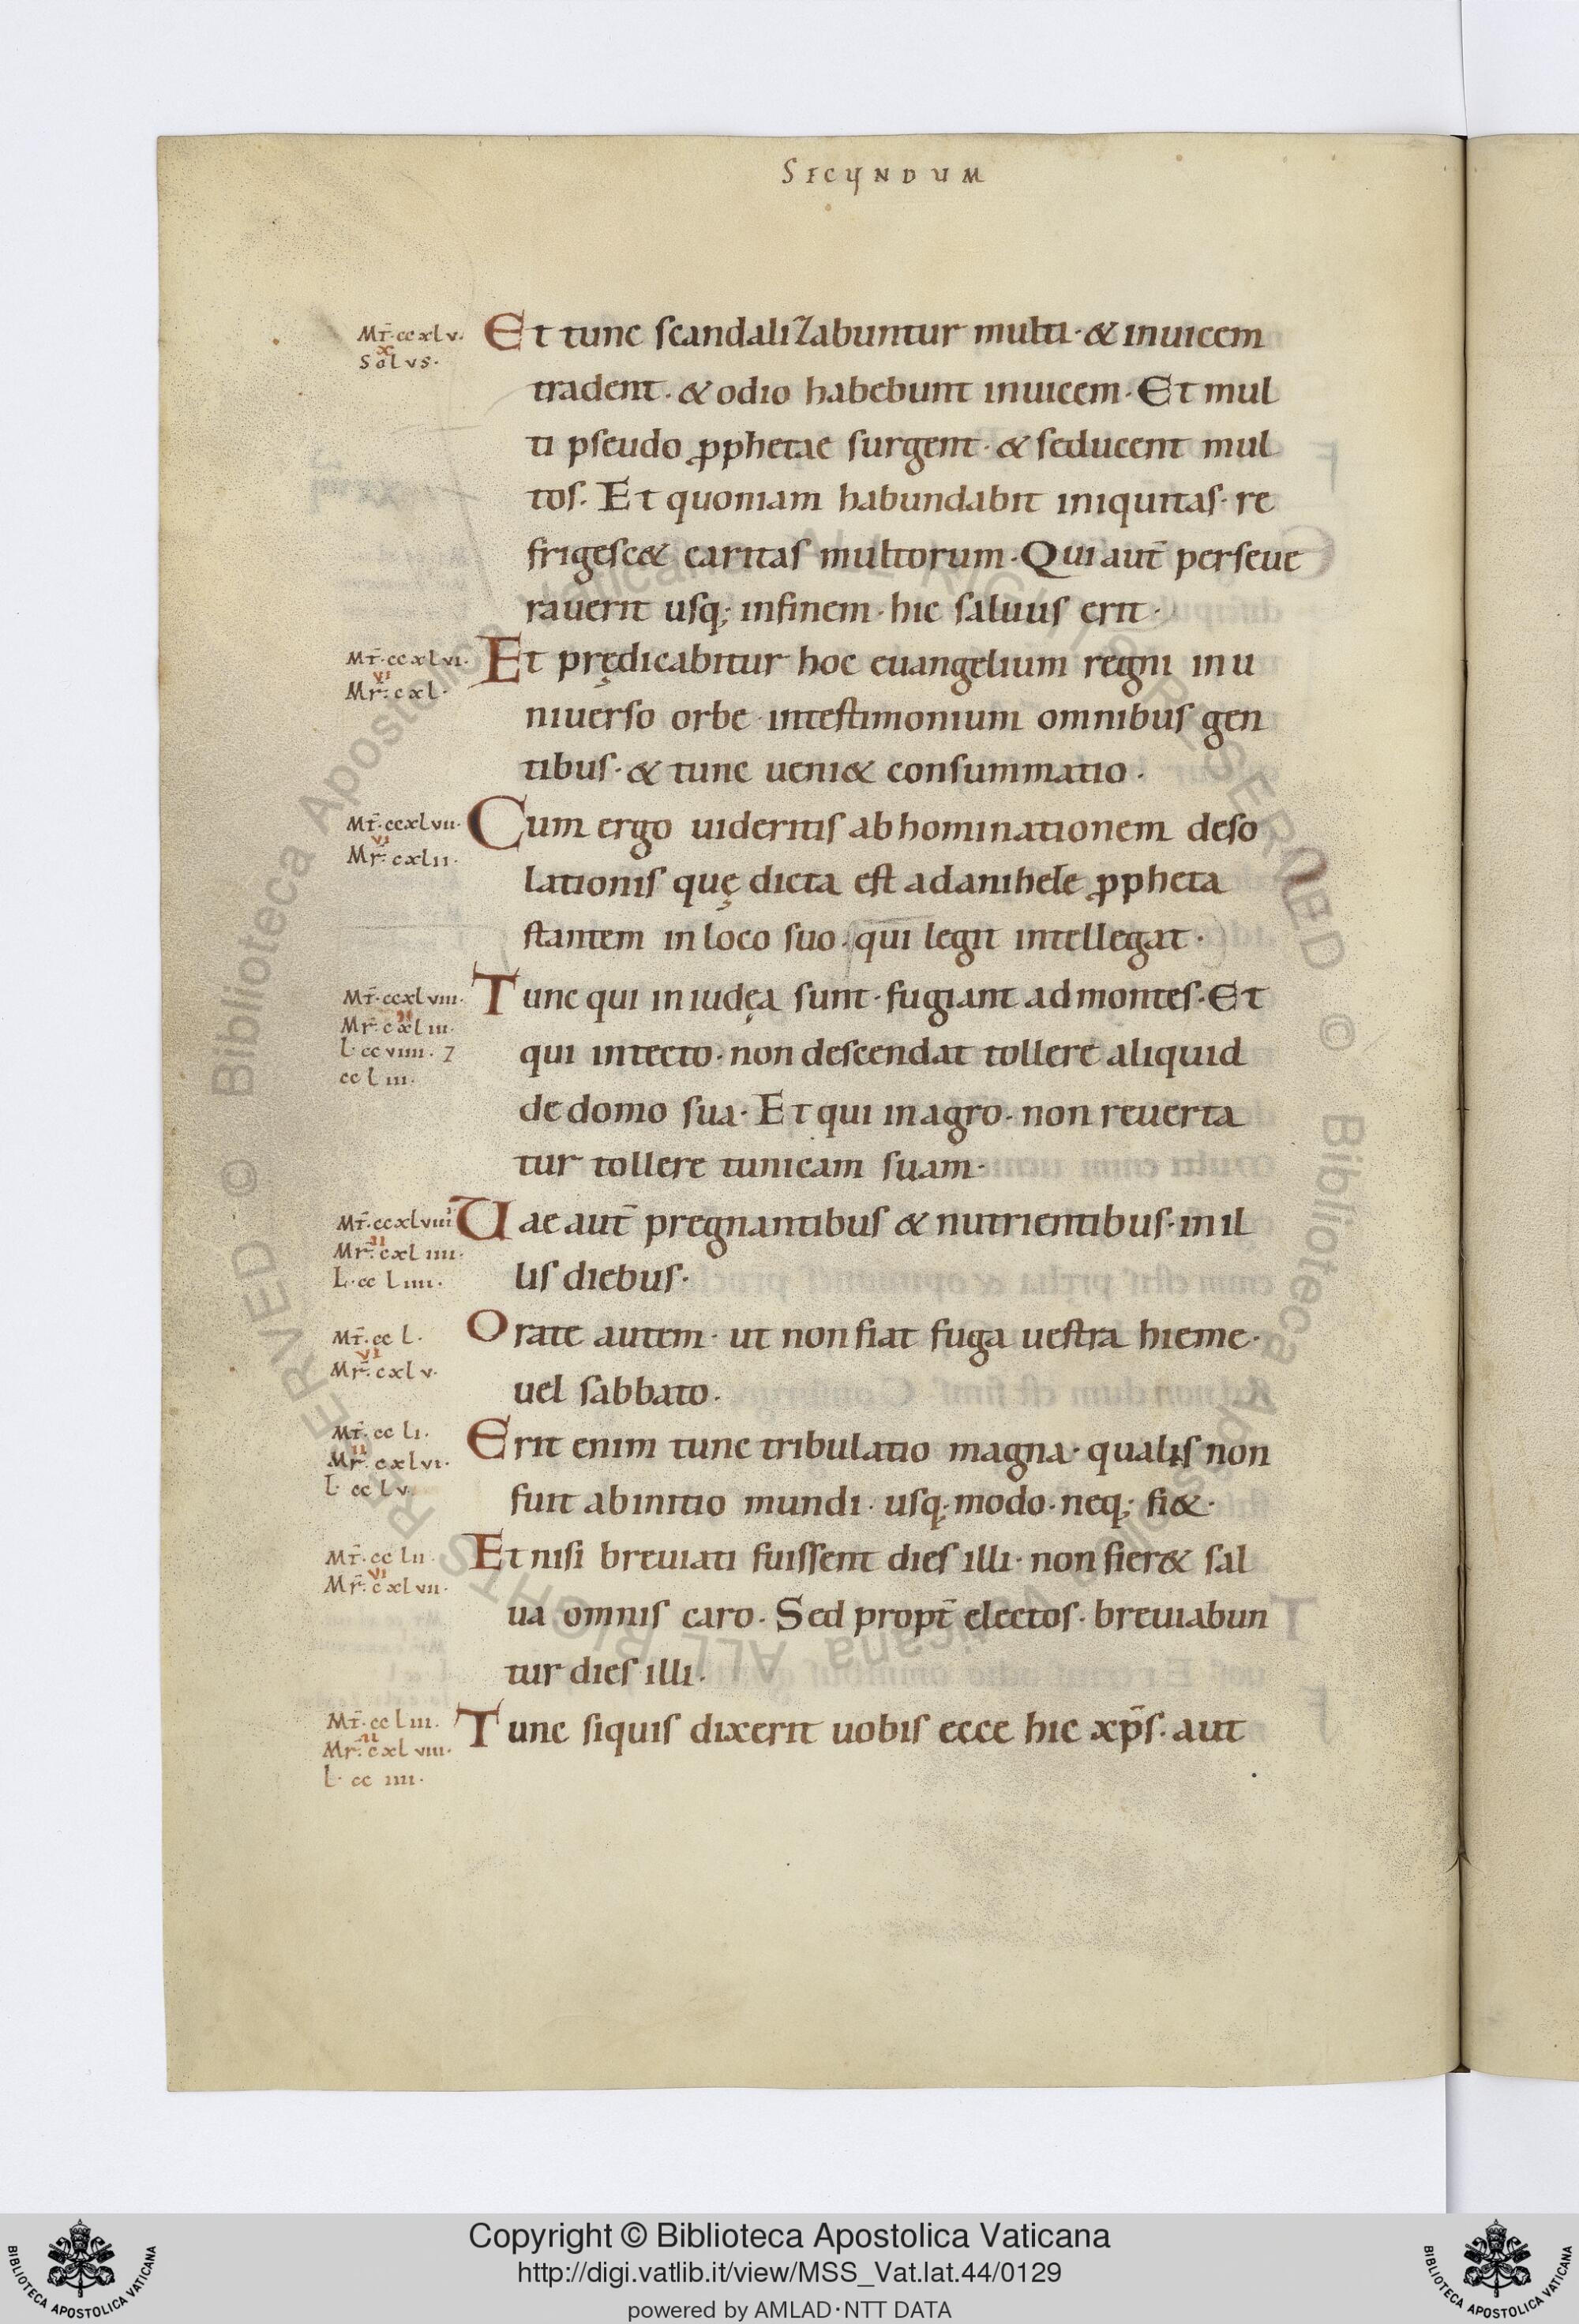 SECUNDUM
Mt̄·ccxlv·
x
Solus·
Et tunc scandalizabuntur multi· & inuicem
tradent· & odio habebunt inuicem· Et mul
ti pseudo ꝓphetae surgent· & seducent mul
tos· Et quoniam habundabit iniquitas· re
frigesc& caritas multorum· Qui aut̄ perseue
rauerit usq; infinem· hic saluus erit·
Mt̄·ccxlvi·
vi
Mr̄·cxl·
Et prędicabitur hoc euangelium regni in u
niuerso orbe intestimonium omnibus gen
tibus· & tunc ueni& consummatio·
Mt̄·ccxlvii·
vi
Mr̄·cxlii·
Cum ergo uideritis abhominationem deso
lationis quę dicta est adanihele ꝓpheta
stantem in loco suo· qui legit intellegat·
Mt̄·ccxlviii·
ii
Mr̄·cxliii·
L·ccviiii· 7
ccliii·
Tunc qui in iudęa sunt· fugiant ad montes· Et
qui intecto· non descendat tollere aliquid
de domo sua· Et qui in agro· non reuerta
tur tollere tunicam suam·
Mt̄·ccxlviiii
ii
Mr̄·cxliiii·
L·ccliiii·
Uae aut̄ pregnantibus & nutrientibus· in il
lis diebus·
Mt̄·ccl·
vi
Mr̄·cxlv·
Orate autem· ut non fiat fuga uestra hieme·
uel sabbato·
Mt̄·ccli·
ii
Mr̄·cxlvi·
L·cclv·
Erit enim tunc tribulatio magna· qualis non
fuit abinitio mundi· usq; modo· neq; fi&·
Mt̄·cclii·
vi
Mr̄·cxlvii·
Et nisi breuiati fuissent dies illi· non fier& sal
ua omnis caro· Sed propt̄ electos· breuiabun
tur dies illi·
Mt̄·ccliii·
ii
Mr̄·cxlviii·
L·cciiii·
Tunc siquis dixerit uobis ecce hic xp̄s· aut
Copyright © Biblioteca Apostolica Vaticana
http://digi.vatlib.it/view/MSS_Vat.lat.44/0129
powered by AMLAD·NTT DATA
BIBLIOTECA APOSTOLICA VATICANA
BIBLIOTECA APOSTOLICA VATICANA